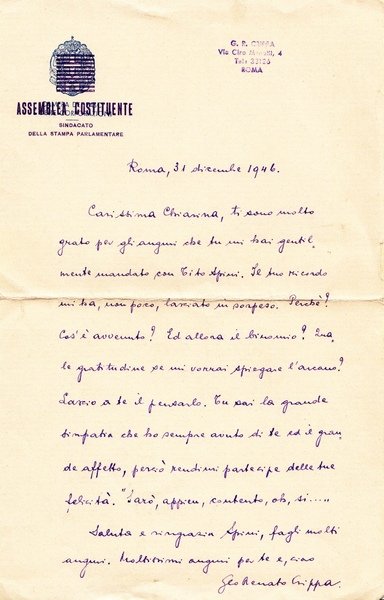 G. R. CRIPPA
Via Ciro Menotti, 4
Tel.
ROMA
ASSEMBLEA COSTITUENTE
SINDACATO
DELLA STAMPA PARLAMENTARE
Roma, 31 dicembre 1946.
Carissima Chiarina, ti sono molto
grato per gli auguri che tu mi hai gentil,
mente mandato con Tito Spini. Il tuo ricordo
mi ha, non poco, lasciato in sospeso. Perchè?
Cos'è avvenuto? Ed allora il binomio? Qua,
le gratitudine se mi vorrai spiegare l'arcano?
Lascio a te il pensarlo. Tu sai la grande
simpatia che ho sempre avuto di te ed il gran,
de affetto, perciò rendimi partecipe delle tue
felicità. "Sarò, appieu, contento, oh, si.....
Saluta e ringrazia Spini, fagli molti
auguri. Moltissimi auguri per te e, ciao
Geo Renato Crippa.